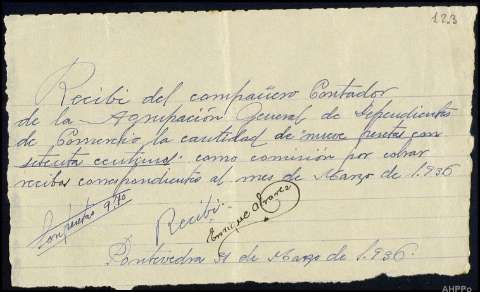 123
Recibi del compañero Contador
de la Agrupación General de Dependientes
de Comercio la cantidad de nueve pesetas con
setenta centimos como comisión por cobrar
recibos correspondientes al mes de Marzo de 1.936
Son pesetas 9'70
Recibi:
Enrique Alvarez
Pontevedra 31 de Marzo de 1.936.
AHPPo